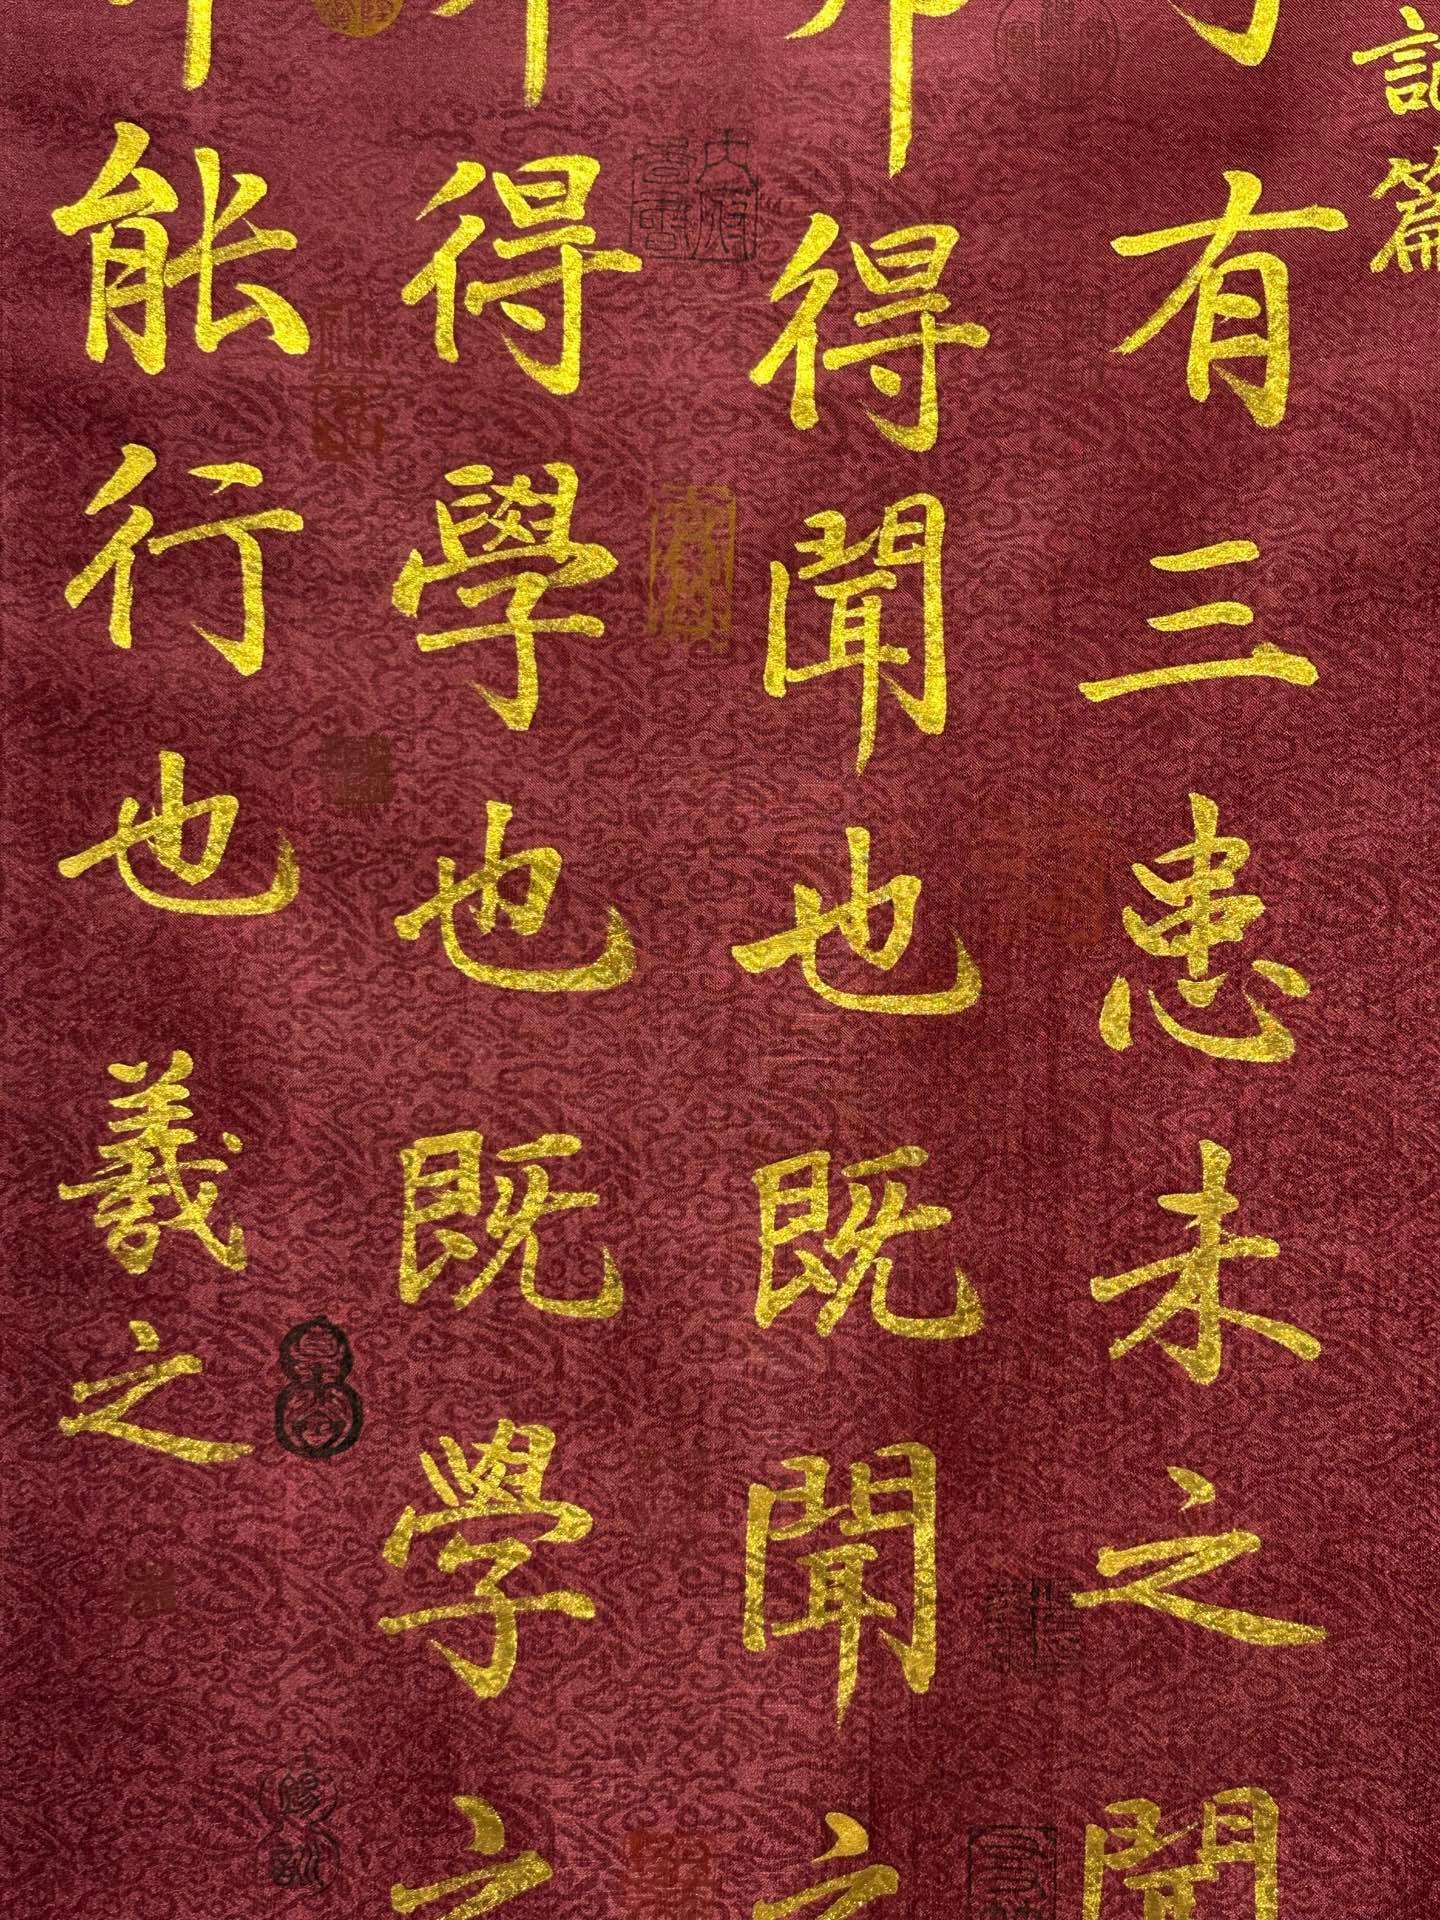 記篇
有三患未之聞
得聞也既聞之
得學也既學之
能行也羲之